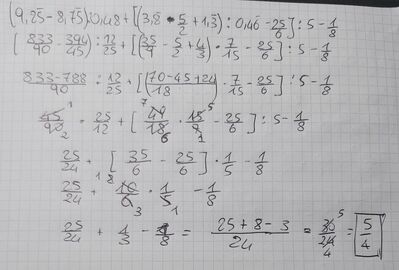 (9,25 - 8,75):0,48 + [(3,8 - 5/2 + 1,3) : 0,46 - 25/6] : 5 - 1/8
[ 833/90 - 394/45) : 12/25 + [(35/9 - 5/2 + 4/3) · 7/15 - 25/6] : 5 - 1/8
833-788/90 : 12/25 + [(70-45+24)/18 · 7/15 - 25/6] : 5 - 1/8
45/90 1 2 · 25/12 + [ 7 49/18 6 · 15/7 5 1 - 25/6 ] : 5 - 1/8
25/24 + [ 35/6 - 25/6 ] · 1/5 - 1/8
25/24 + 10/6 3 · 1/5 1 - 1/8
25/24 + 1/3 - 1/8 = 25 + 8 - 3/24 = 30/24 5 4 = 5/4